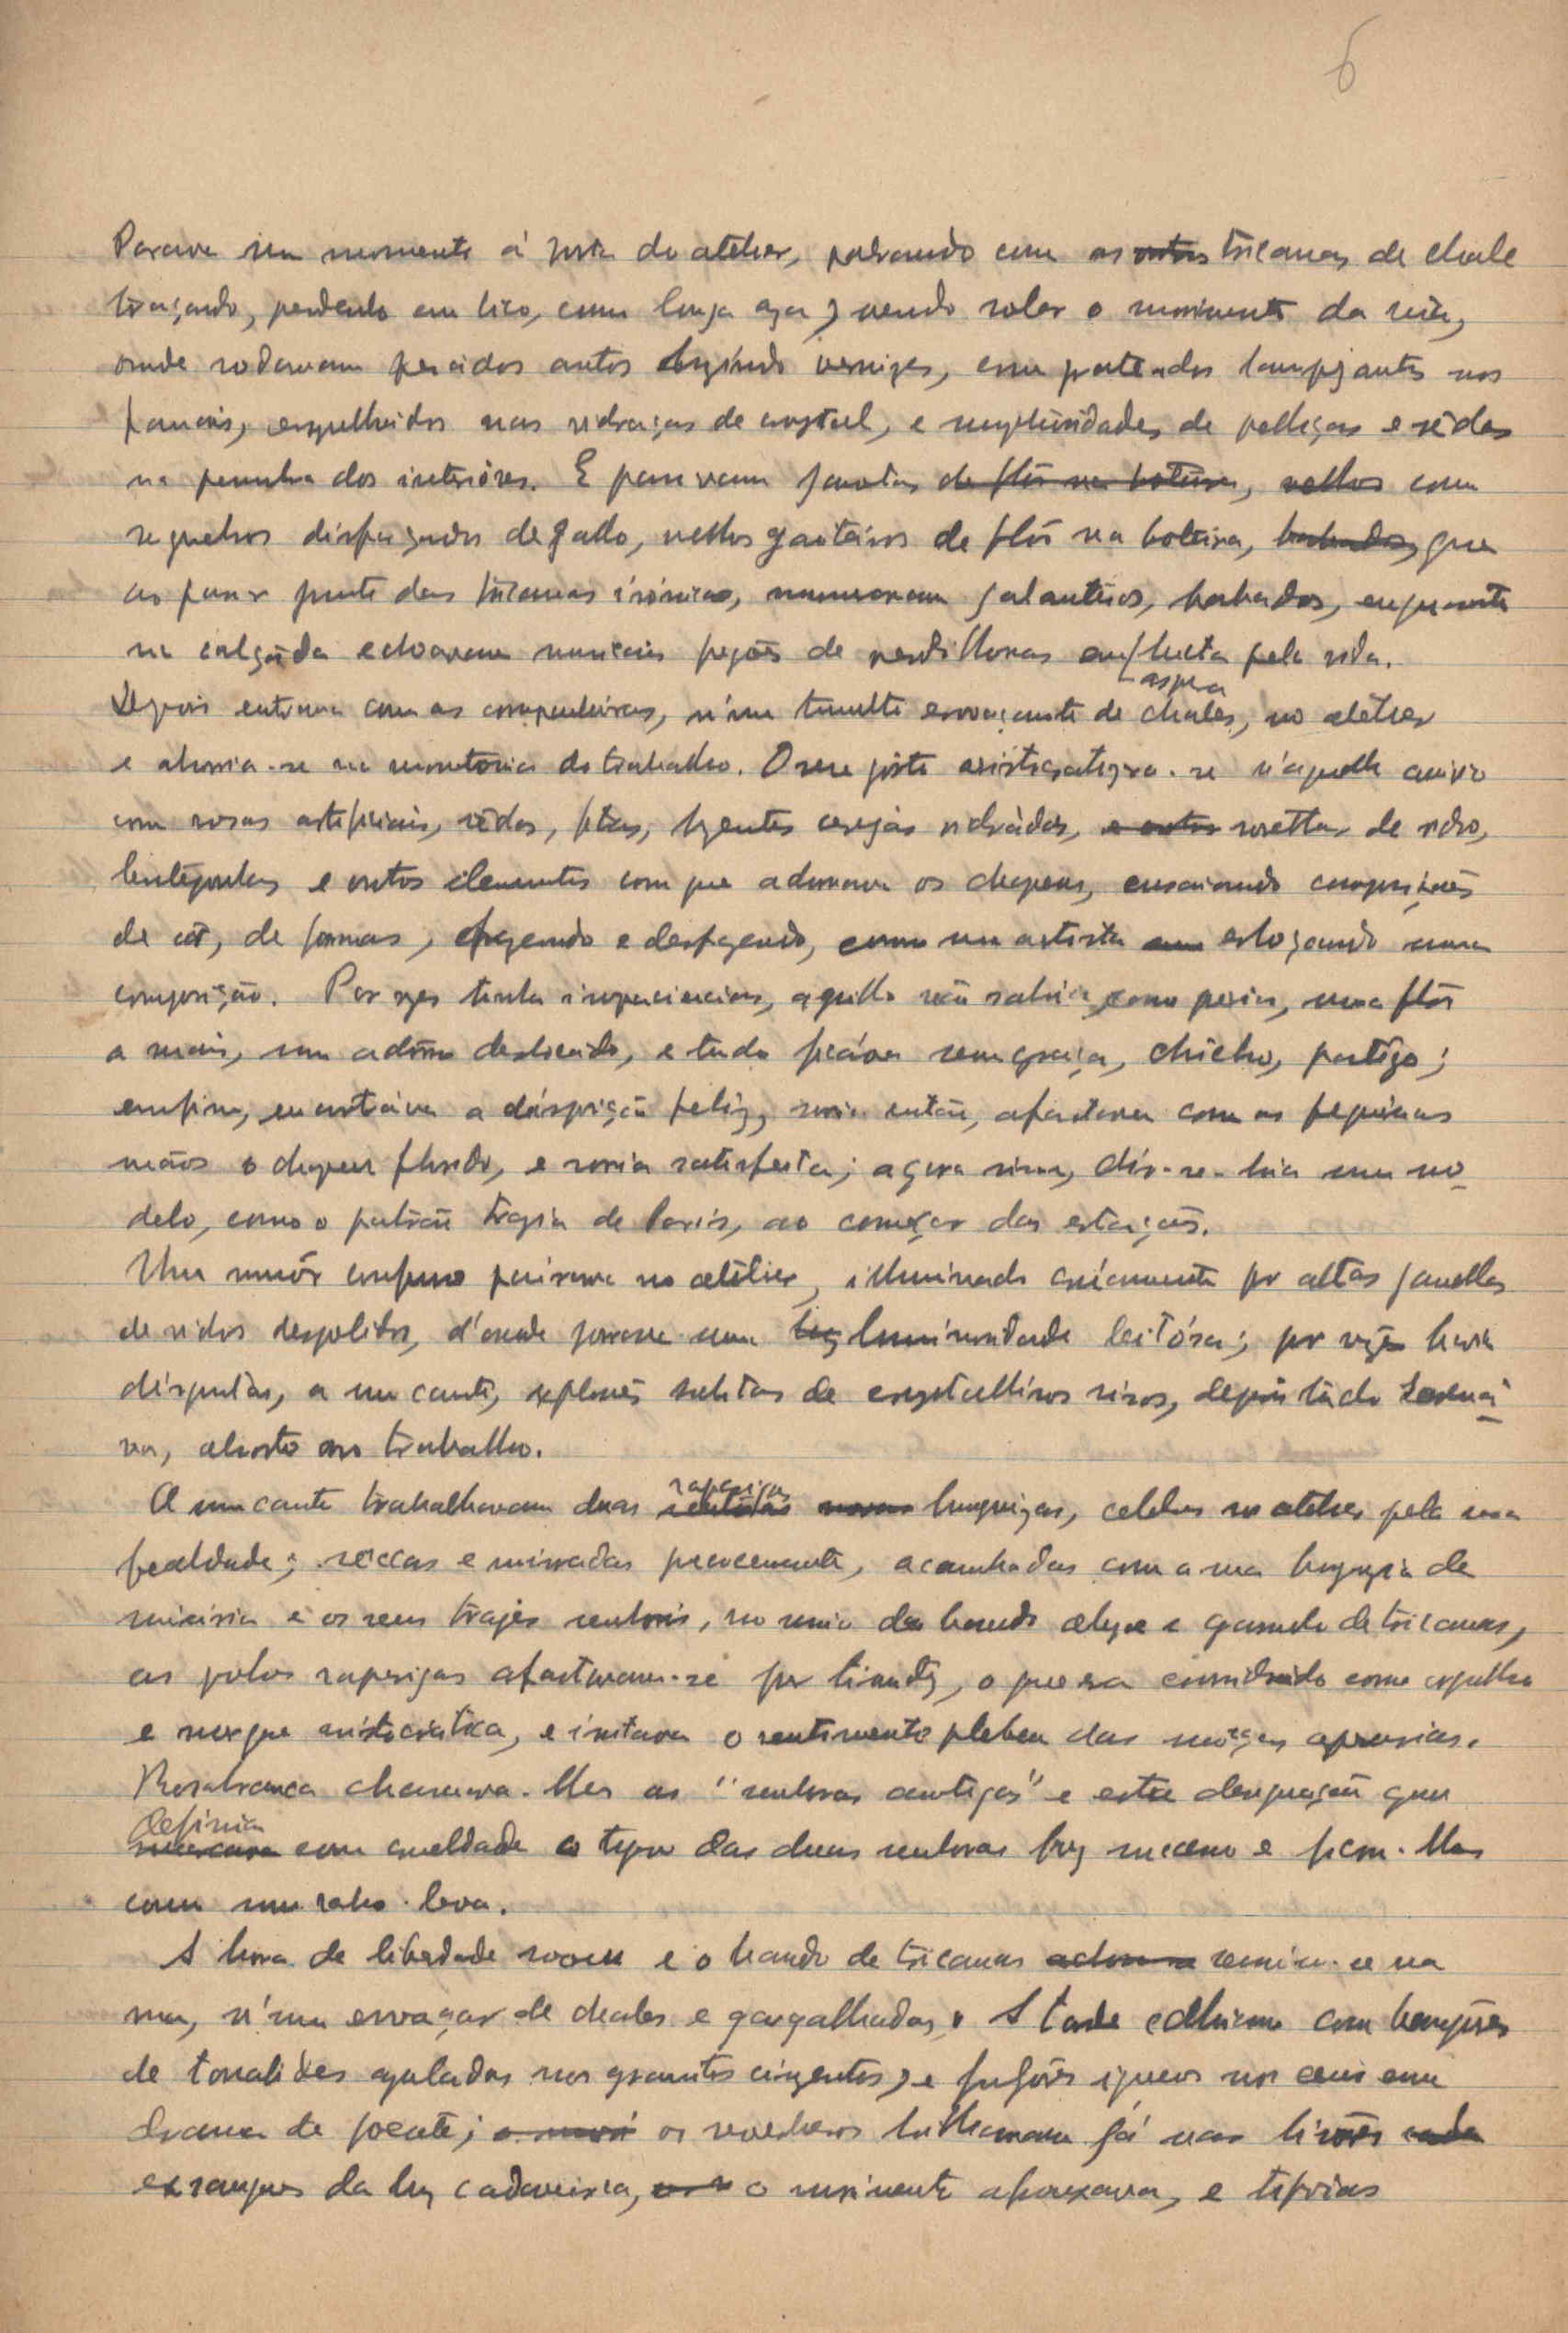 6
Parava um momento á porta do atelier, palrando com as outras tricanas de chale
traçando, pendendo em bico, como longa aza, vendo rolar o movimento da rua,
onde rodavam pesados autos luzindo vernizes, com prateados lampejantes nos
faroes, espelhados nas vidraças de crystal, e sumptuosidades de pelliças e sêdas
na penumbra dos interióres. E passavam janotas de flôr na botoeira, velhos com
requebros de gallo, velhos gaiteiros de flôr na botoeira, babados, que
ao passar junto das tricanas irónicas, murmuravam galanteios, babados, enquanto
na calçada echoavam musicais pregões de vendilhonas em lucta pela vida.
aspera
Depois entrava com as companheiras, n'um tumulto esvoaçante de chales, no atelier
e absorvia-se na monotonia do trabalho. O seu gosto se n'aquelle
com rosas artificiais, sêdas, fitas, luzentes cerejas vidrádas, e outros rosettas de vidro,
lentejoulas e outros elementos com que adornava os chapeus, ensaiando composições
de côr, de formas, fazendo e desfazendo, como um artista esboçando uma
composição. Por vezes tinha impaciencias, aquillo não sahia como queria, uma flôr
a mais, um adôrno deslocado, e tudo ficáva sem graça, chicho, postiço;
emfim, encontráva a disposição feliz, sorria então, afastava com as pequenas
mãos o chapeu florido, e sorria satisfeita; agora sim, dir-se-hia um mo-
delo, como o patrão trazia de Paris, ao começar das estações.
Um rumôr confuso pairava no atelier, illuminado por altas janellas
de vidros despolidos, d'onde jorrava uma luz luminosidade leitósa; por vezes havia
disputas, a um canto, explosões subitas de crystallinos risos, depois tudo serená-
va, absorto no trabalho.
raparigas
A um canto trabalhavam duas senhoras novas burguezas, celebres no atelier pela sua
fealdade; seccas e mirradas precocemente, acanhadas com a sua burguezia de
miséria e os seus trajes senhoris, no meio do bando alegre e garrulo de tricanas,
as pobres raparigas afastavam-se por timidez, o que era considerado como orgulho
e aristocrática, e irritava o sentimento plebeu das moças operarias.
Rosabranca chamava-lhes as "senhoras antigas" e esta designação que
definia
marcava com crueldade o typo das duas senhoras fez sucesso e ficou-lhes
como um rabo-leva.
A hora de liberdade soou e o bando de tricanas reuniu-se na
rua, n'um esvoaçar de chales e gargalhadas. A tarde com
de tonalidades azuladas nos granitos cinzentos, e fulgores igneos nos ceus em
drama de poente; os revérberos brilhavam já nos
exsangues da luz cadaverica, o movimento afrouxava, e